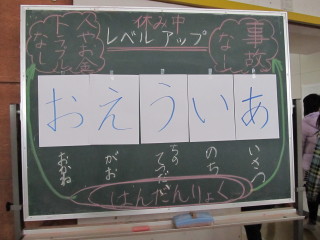 休み中
レベルアップ
事故
なし
人やお金
トラブル
なし
あ
い
う
え
お
いさつ
のち
ちの
てつだい
がお
おかね
はんだんりょく